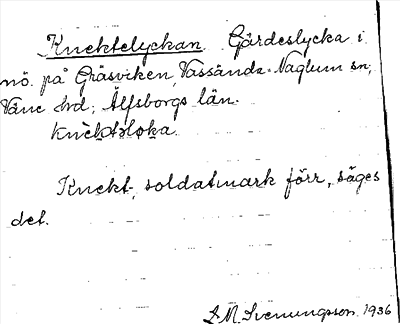 Knektelyckan. Gärdeslycka i
nö. på Gräsviken, Vassända-Naglum sn,
Väne hd, Älfsborgs län.
Knektəloka.
Knekt-, soldatmark förr, säges
det.
S. M. Svenungsson 1936